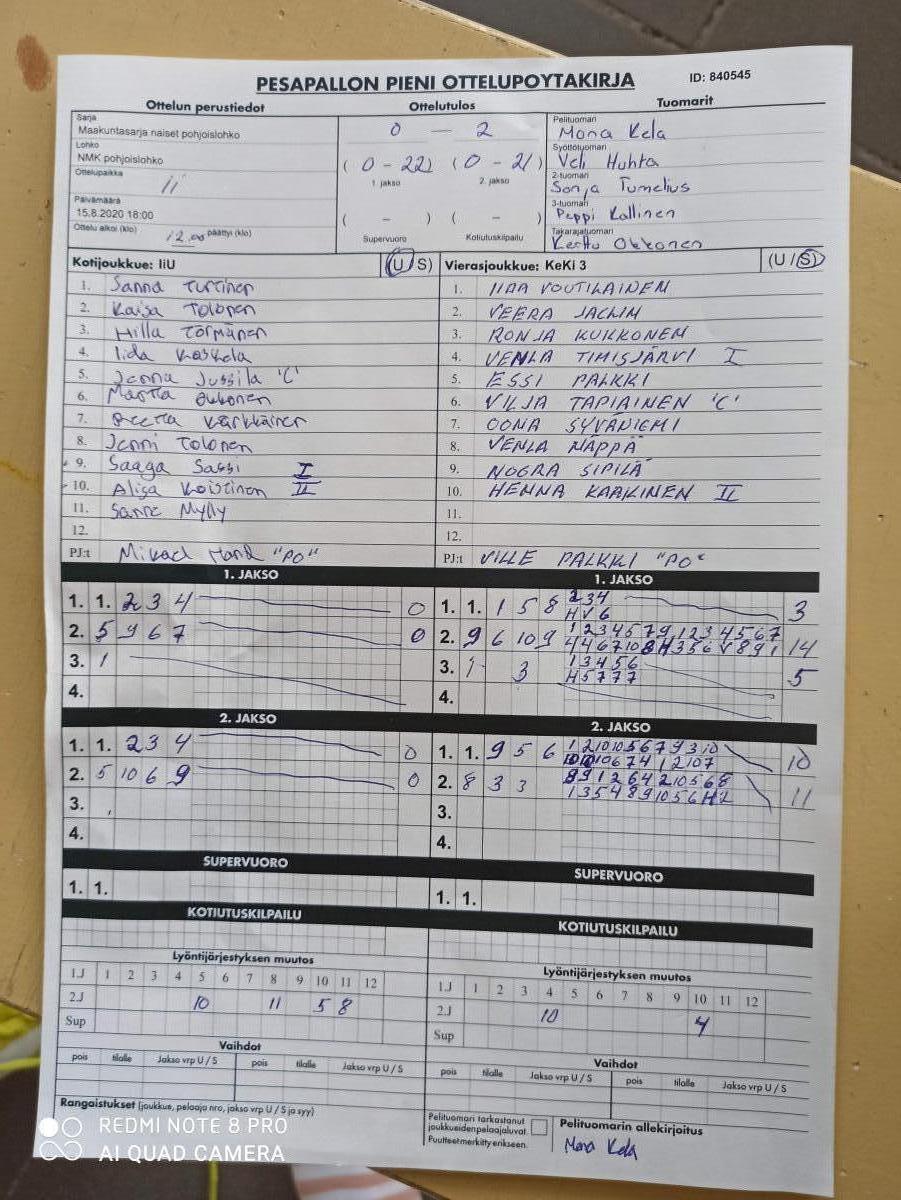 PESAPALLON PIENI OTTELUPOYTAKIRJA ID: 840545
Ottelun perustiedot Ottelutulos Tuomarit
Sarja
Maakuntasarja naiset pohjoislohko
Lohko
NMK pohjoislohko
Ottelupaikka
Ii
Päivämäärä
15.8.2020 18:00
Ottelu alkoi (klo) 12.00 päättyi (klo)
0 - 2
(0 - 22) (0 - 21)
1. jakso 2. jakso
( - ) ( - )
Supervuoro Kotiutuskilpailu
Pelituomari
Mona Kela
Syöttötuomari
Veli Huhta
2-tuomari
Sonja Tumelius
3-tuomari
Peppi Kallinen
Takarajatuomari
Kerttu Okkonen
Kotijoukkue: IiU (U/S)
1. Sanna Turtinen
2. Kaisa Tolonen
3. Hilla Törmänen
4. Iida Koskela
5. Jenna Jussila 'C'
6. Martta Okkonen
7. Reetta Kärkkäinen
8. Jenni Tolonen
9. Saaga Sassi I
10. Alisa Koistinen II
11. Sanna Mylly
12.
PJ:t "PO"
Vierasjoukkue: KeKi 3 (U/S)
1. IIDA VOUTILAINEN
2. VEERA JACLIN
3. RONJA KUIKKONEN
4. VENLA TIMISJÄRVI I
5. ESSI PALKKI
6. VILJA TAPIAINEN 'C'
7. OONA SYVÄNIEMI
8. VENLA NÄPPÄ
9. NOORA SIPILÄ
10. HENNA KARKINEN II
11.
12.
PJ:t VILLE PALKKI "PO"
1. JAKSO
1. 1. 2 3 4 0
2. 5 9 6 7 0
3. 1
4.
2. JAKSO
1. 1. 2 3 4 0
2. 5 10 6 9 0
3.
4.
SUPERVUORO
1. 1.
KOTIUTUSKILPAILU
Lyöntijärjestyksen muutos
1.J 1 2 3 4 5 6 7 8 9 10 11 12
2.J 10 11 5 8
Sup
Vaihdot
pois tilalle Jakso vrp U / S pois tilalle Jakso vrp U / S
1. JAKSO
1. 1. 1 5 8 2 3 4 3
H V 6
2. 9 6 10 9 1 2 3 4 5 6 7 9 1 2 3 4 5 6 7 14
4 4 6 7 10 8 H 3 5 6 V 8 9 1
3. 1 3 1 3 4 5 6 5
H 5 7 7 7
4.
2. JAKSO
1. 1. 9 5 6 1 2 10 10 5 6 7 9 3 10 10
10 10 10 6 7 4 1 2 10 7
2. 8 3 3 8 9 1 2 6 4 2 10 5 6 8 11
1 3 5 4 8 9 10 5 6 H 2
3.
4.
SUPERVUORO
1. 1.
KOTIUTUSKILPAILU
Lyöntijärjestyksen muutos
1.J 1 2 3 4 5 6 7 8 9 10 11 12
2.J 10 4
Sup
Vaihdot
pois tilalle Jakso vrp U / S pois tilalle Jakso vrp U / S
Rangaistukset (joukkue, pelaaja nro, jakso vrp U / S ja syy)
Pelituomari tarkastanut
joukkueidenpelaajaluvat.
Puutteetmerkittyerikseen.
Pelituomarin allekirjoitus
Mona Kela
REDMI NOTE 8 PRO
AI QUAD CAMERA